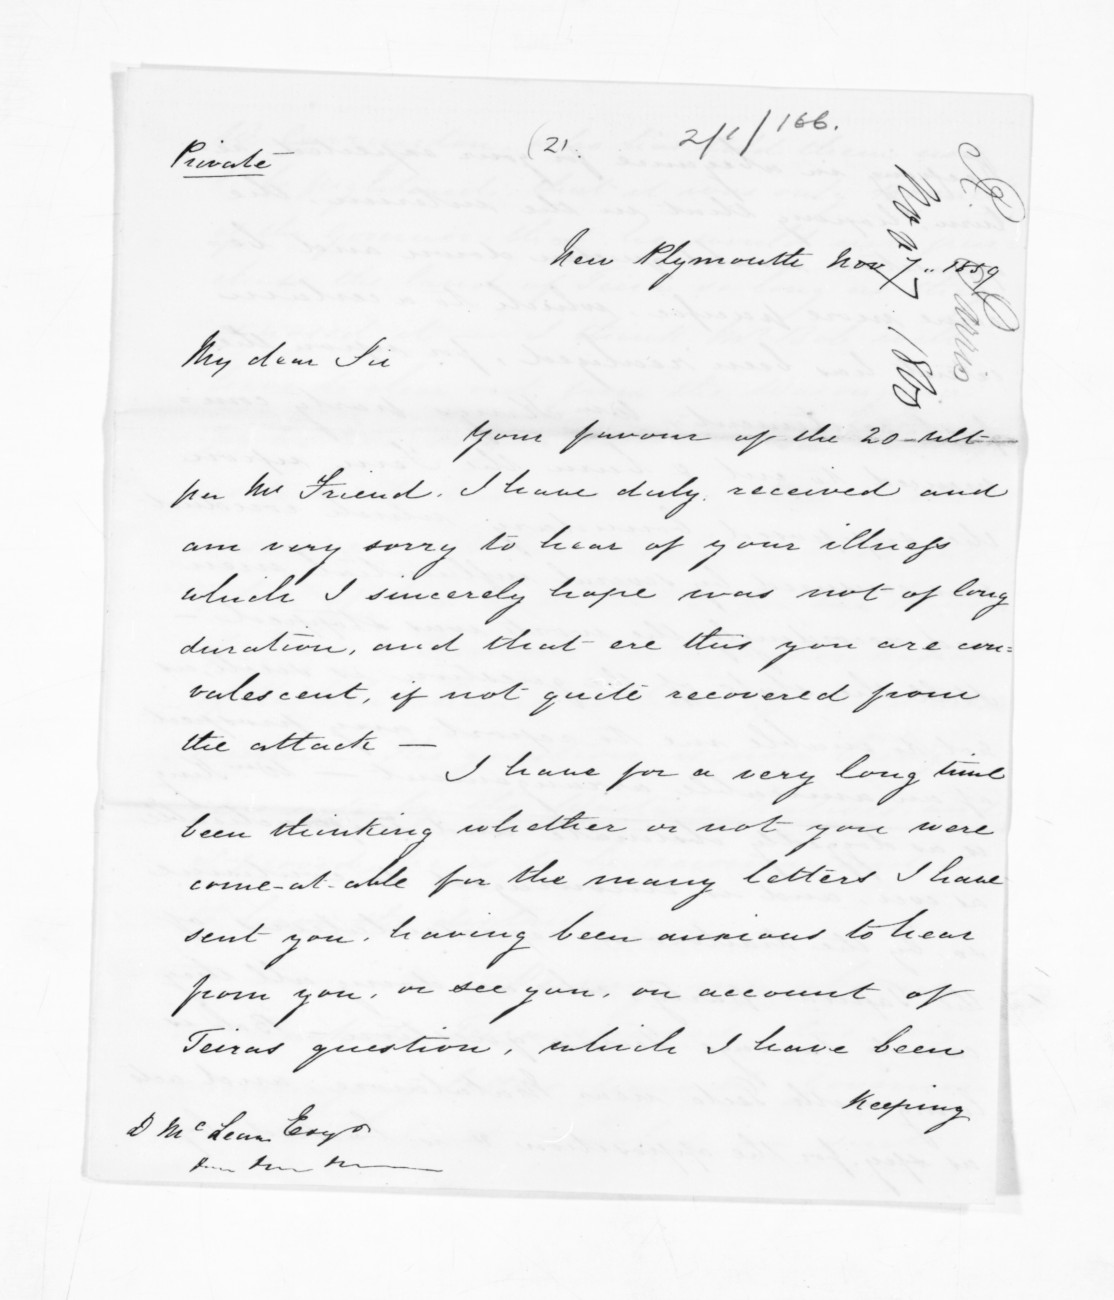 Private
(21.
2/1/166.
New Plymouth Nov 7" 1859
My dear Sir
Your favour of the 20 ult-
per Mr Friend. I have duly received and
am very sorry to hear of your illness
which I sincerely hope was not of long
duration, and that ere this you are con=
valescent, if not quite recovered from
the attack —
I have for a very long time
been thinking whether or not you were
come-at-able for the many letters I have
sent you, having been anxious to hear
from you, or see you, on account of
Teiras question, which I have been
Keeping
D McLean Esqr
Parris